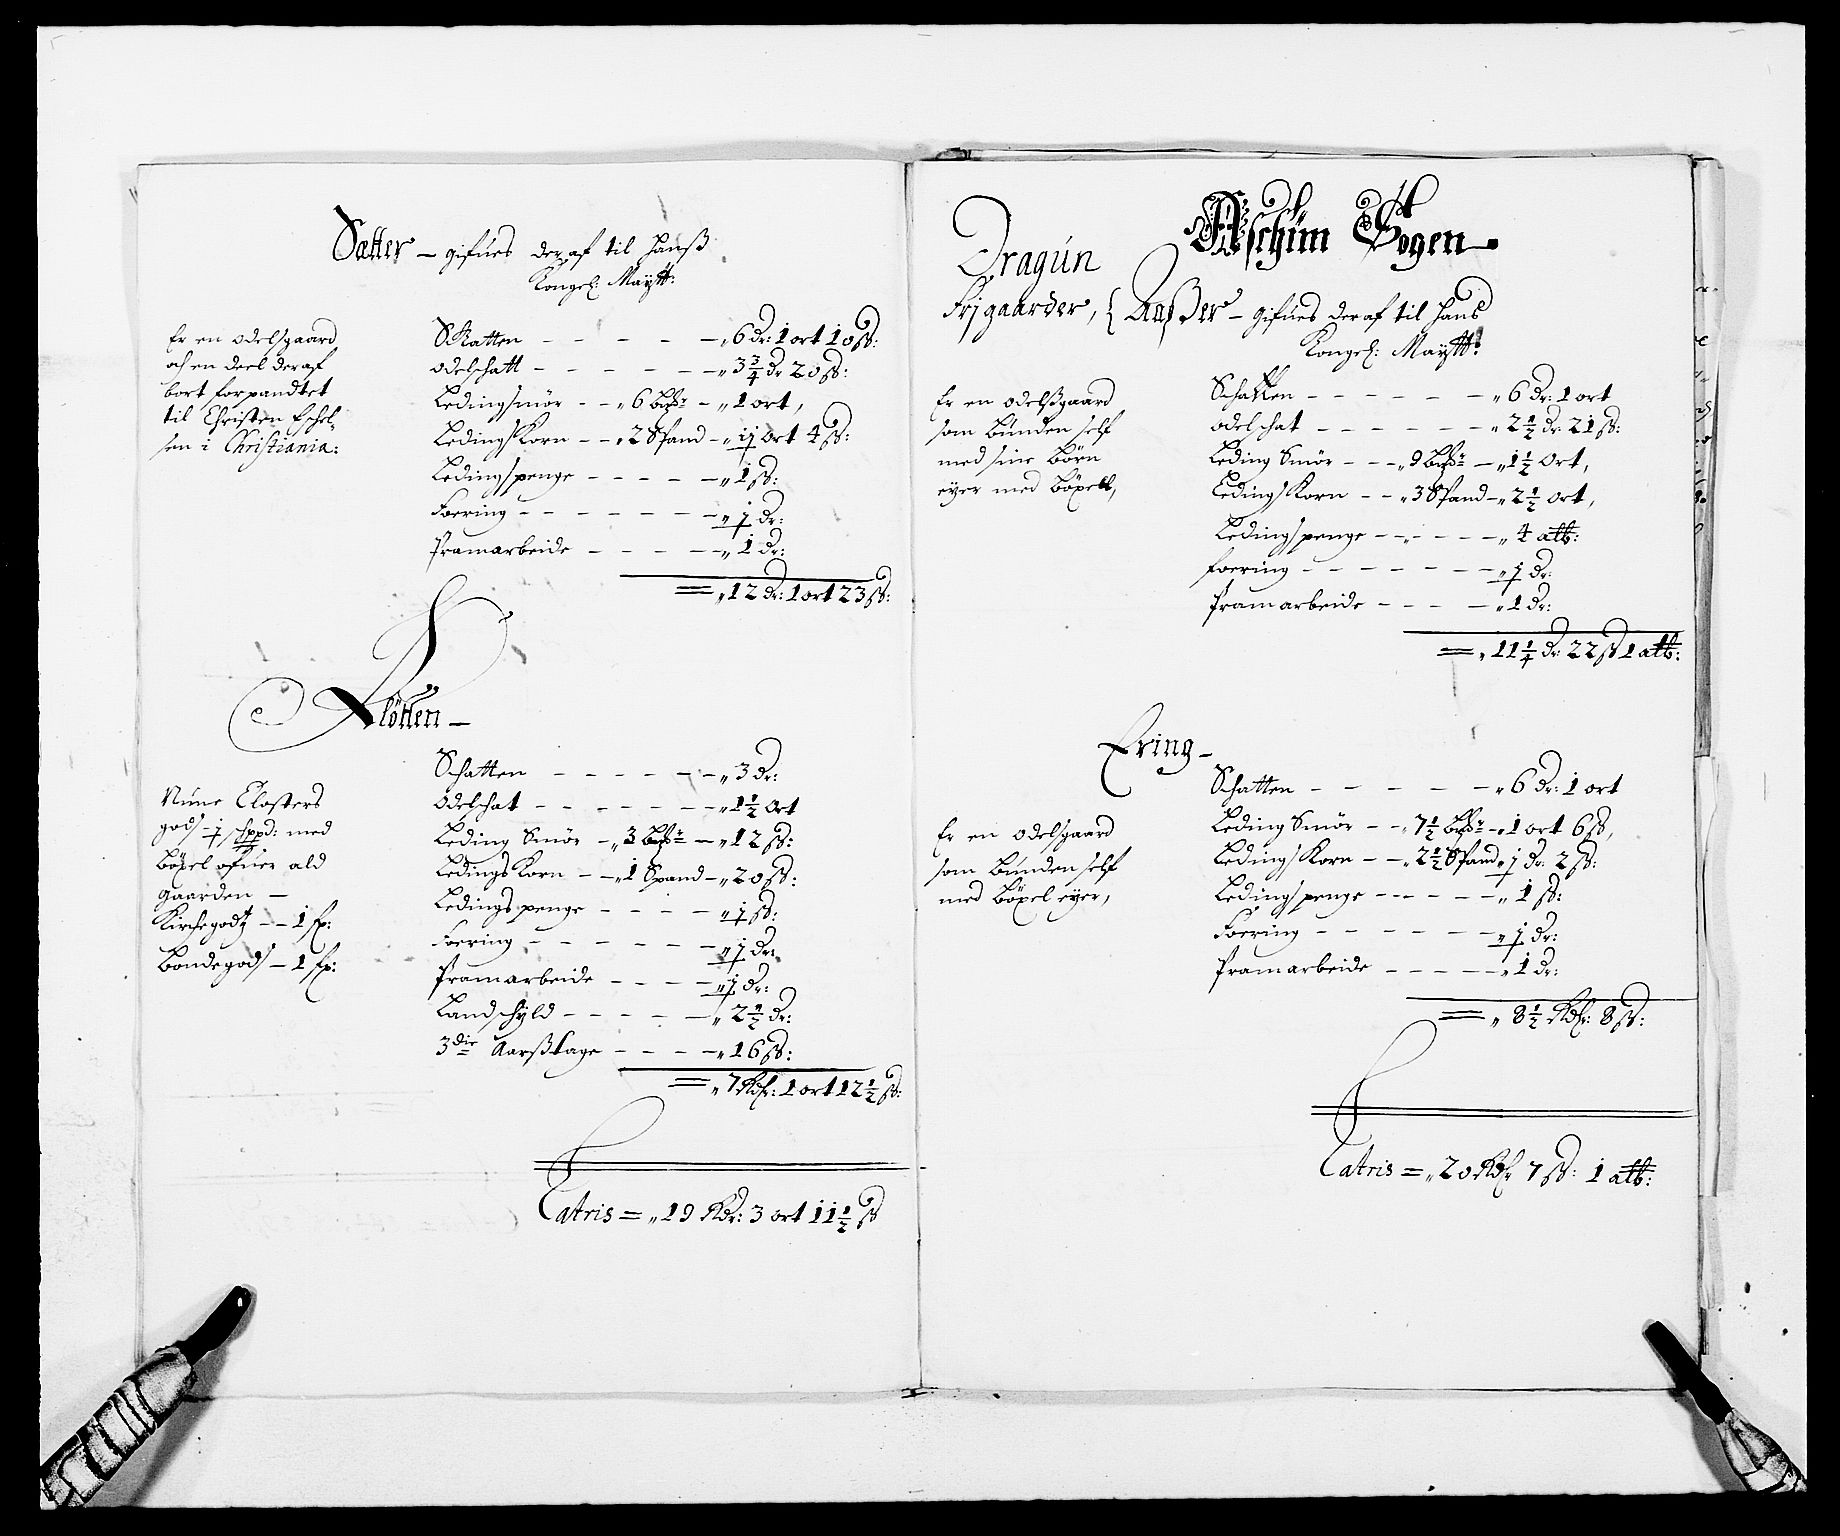 Sætter – gifues deraf til Hanß
Kongel: Maÿtt:
Er en odelsgaard
och en deel deraf
bort forpandtet
til Christen Eschel-
sen i Christiania:
Skatten – – – – – „ 6 Dr: 1 ort 10 ß:
odelschatt – – – – – – „ 3 3/4 dr 20 ß:
Leding smör – – „ 6 – „ 1 ort,
Ledings Korn – – „ 2 Spand – „ ort 4 ß:
Ledings penge – – – – – „ 1 ß:
Foering – – – – – – – „ j Dr:
Pramarbeide – – – – – „ 1 Dr:
= „ 12 Dr: 1 ort 23 ß:
Klötten –
Nune Closters
gods j schppd: med
böxel ofuer ald
gaarden –
Kirchegodtz – – 1 fr:
Bondegods – 1 fr:
Schatten – – – – – – „ 3 Dr:
odelschat – – – – – – – „ 1 1/2 ort
Leding Smör – „ 3 – „ 12 ß:
Ledings Korn – – „ 1 Spand – „ 20 ß:
Ledings penge – – – – „ j ß:
Foering – – – – – – „ j dr:
Pramarbeide – – – – „ j dr:
Landschÿld – – – – – „ 2 1/2 Dr:
3die Aarß tage – – – – „ 16 ß:
= „ 7 Rdr: 1 ort 12 1/2 ß:
Latris = „ 19 Rdr: 3 ort 11 1/2 ß
Aschim Sogen
Dragún
Frj gaarder, { Aaßer – gifues deraf til Hans
Kongel: Maÿtt:
Er en odelßgaard
som bünden self
med sine börn
eyer med böxell,
Schatten – – – – – – „ 6 Dr: 1 ort
odelschat – – – – – – „ 2 1/2 dr 21 ß:
Leding Smör – – – „ 9 – „ 1 1/2 ort,
Ledings Korn – – „ 3 Spand – „ 2 1/2 ort,
Ledings penge – – – – – „ 4 alb:
foering – – – – – – – „ j Dr:
Pramarbeide – – – – „ 1 Dr:
= „ 11 1/4 dr 22 ß 1 alb:
Ering –
Er en odelsgaard
som bünden self
med böxel eyer,
Schatten – – – – – „ 6 Dr: 1 ort
Leding Smör – – „ 7 1/2 – „ 1 ort 6 ß,
Ledings Korn – – „ 2 1/2 Spand „ j Dr: 2 ß:
Ledings penge – – – – – „ 1 ß:
Foering – – – – – – „ j dr:
Pramarbeide – – – – – „ 1 Dr:
= „ 8 1/2 Rdr: 8 ß:
Latris = „ 20 Rdr 7 ß: 1 alb: